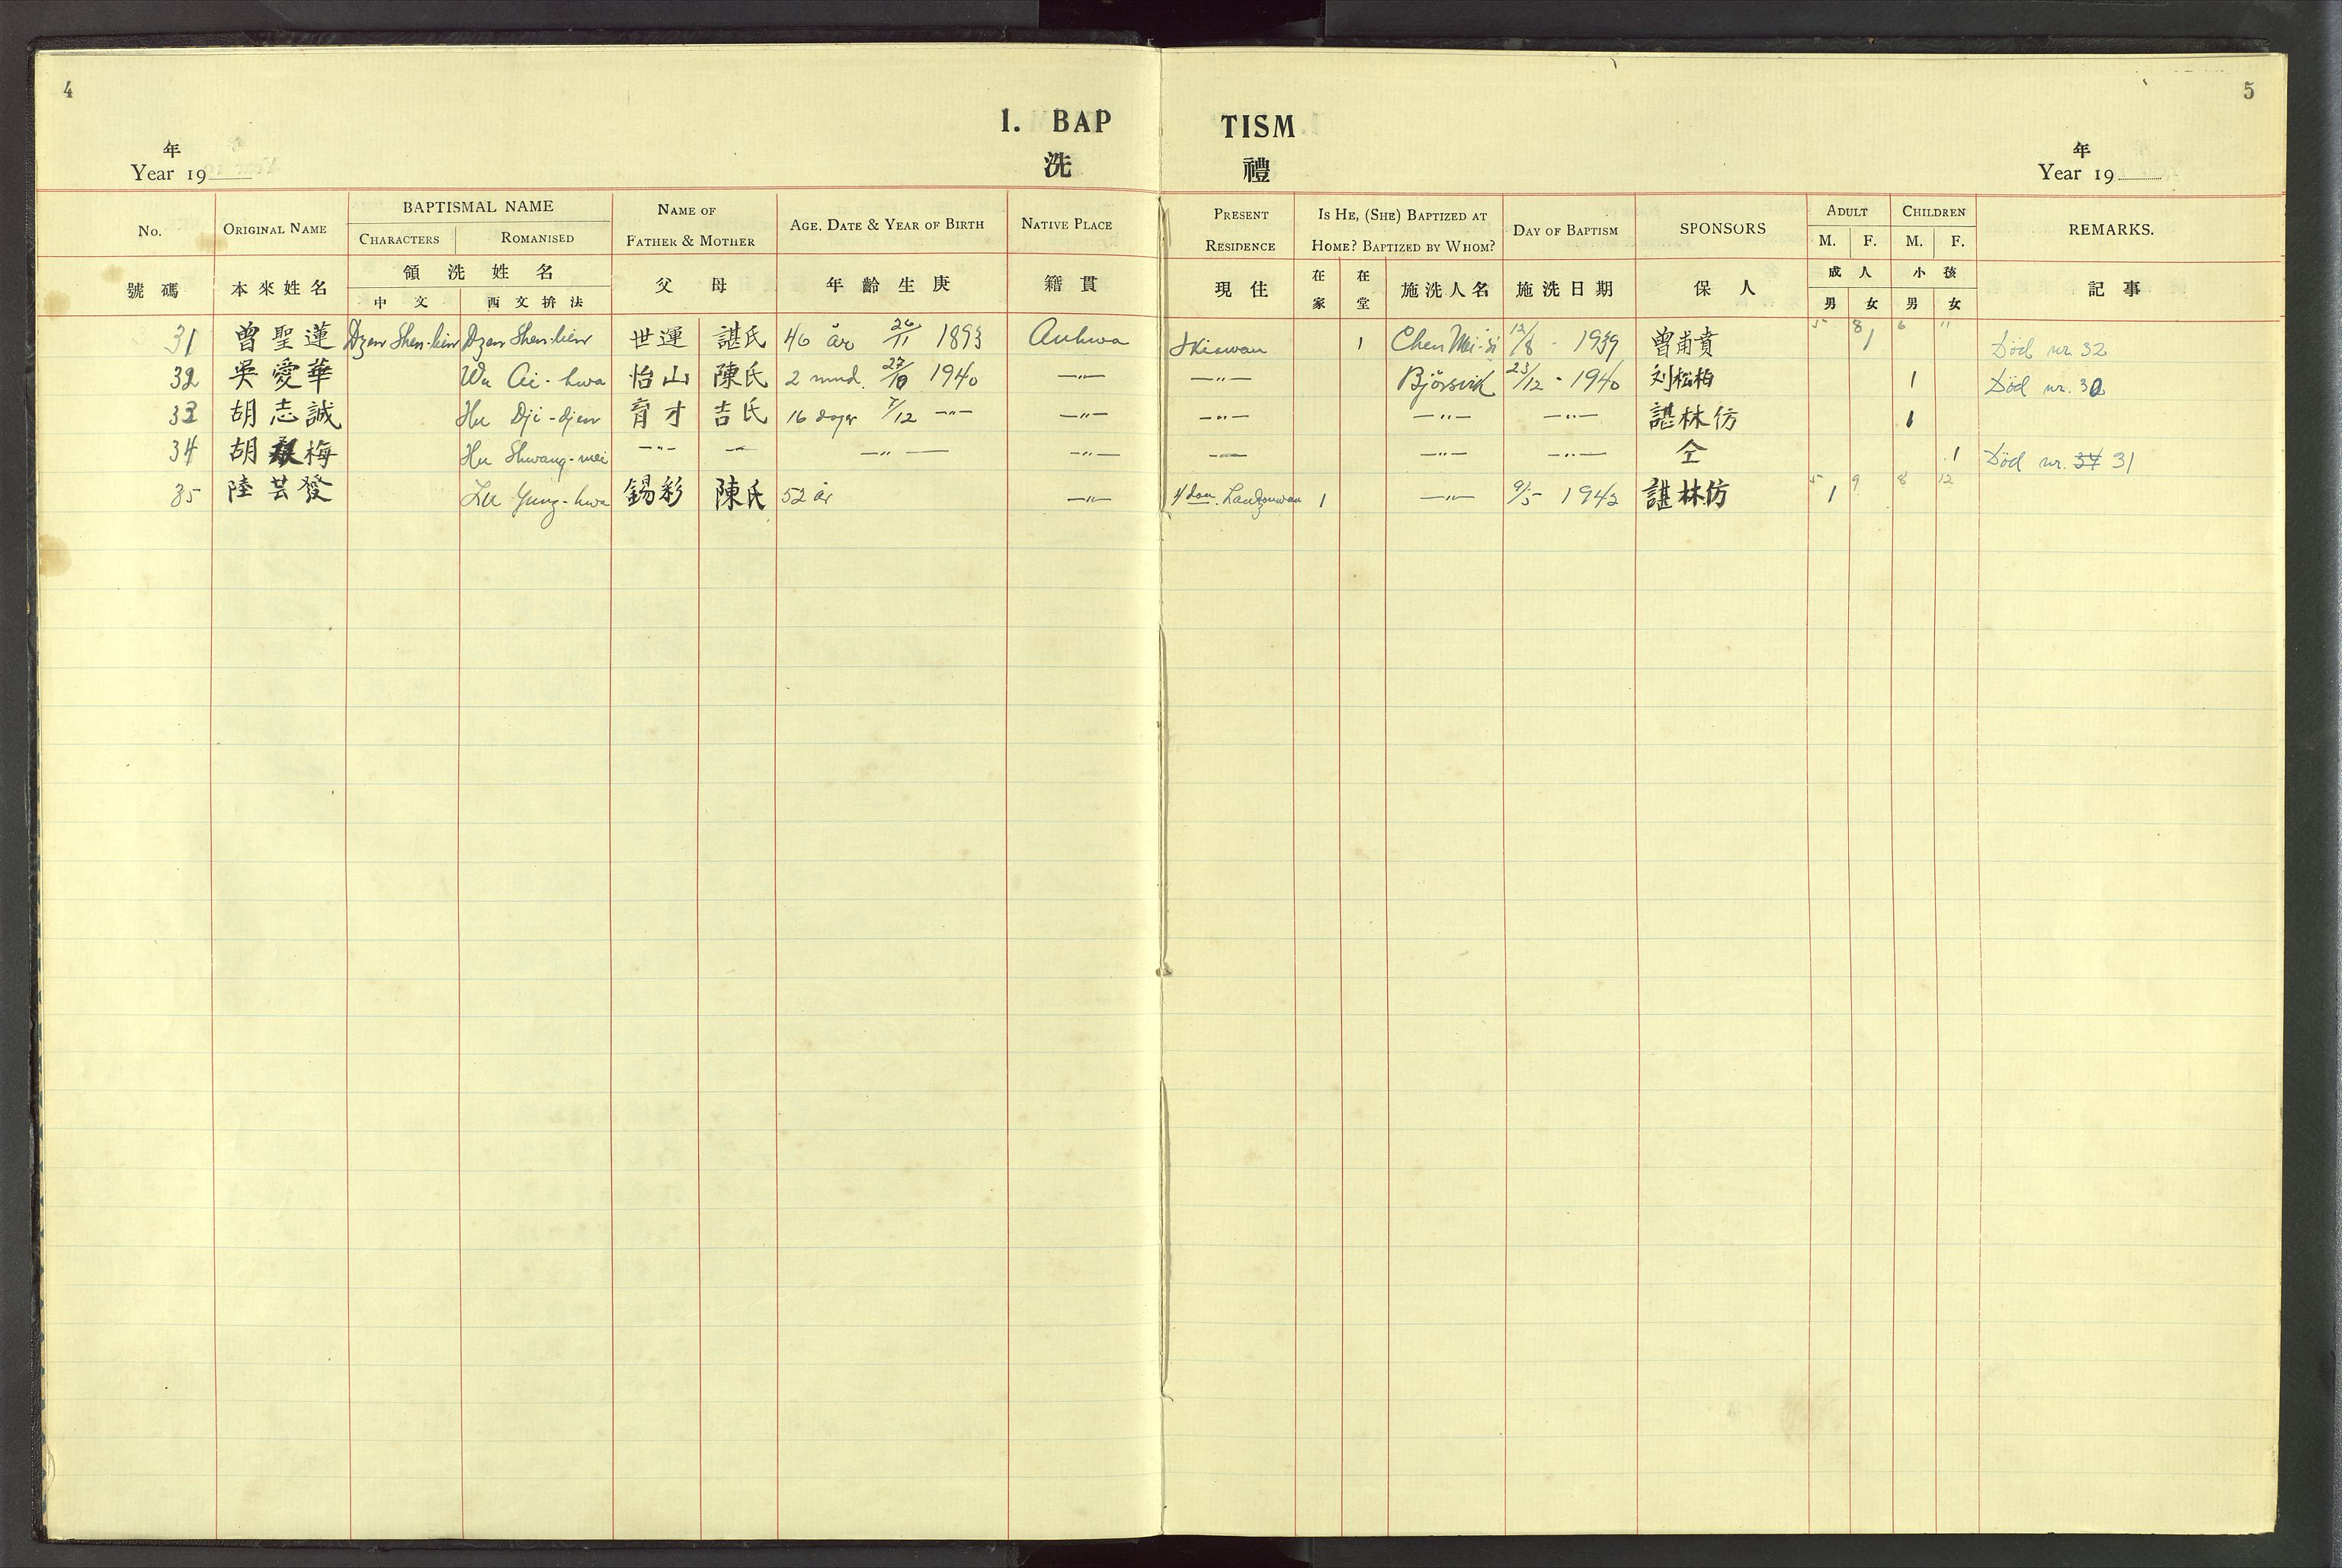 4
5
1. BAP TISM
年
年
Year 19
洗 禮
Year 19
No. ORIGINAL NAME BAPTISMAL NAME NAME OF FATHER & MOTHER AGE. DATE & YEAR OF BIRTH NATIVE PLACE PRESENT RESIDENCE IS HE, (SHE) BAPTIZED AT HOME? BAPTIZED BY WHOM? DAY OF BAPTISM SPONSORS ADULT CHILDREN REMARKS.
CHARACTERS ROMANISED M. F. M. F.
號碼 本來姓名 領洗姓名 父母 年齡生庚 籍貫 現住 在家 在堂 施洗人名 施洗日期 保人 成人 小孩 記事
中文 西文拚法 男 女 男 女
5 8 6 11
31 曾聖蓮 Dzen Shen-lien Dzen Shen-lien 世運 諶氏 46 år 26/11 1893 Anhwa 1 Chen Mei-si 12/8 - 1939 曾甫賁 1 Död nr. 32
32 吳愛華 Wu Ai-hwa 怡山 陳氏 2 mnd. 27/10 1940 —"— —"— Björsvik 23/12 - 1940 刘松柏 1 Död nr. 30
33 胡志誠 Hu Dji-djen 育才 吉氏 16 dager 7/12 —"— —"— —"— —"— —"— 諶林仿 1
34 胡 梅 Hu Shwang-mei —"— —"— —"— —"— —"— —"— —"— 仝 1 Död nr. 34 31
5 9 8 12
35 陸芸發 Lu Yung-hwa 錫彩 陳氏 52 år —"— 1 —"— 9/5 1942 諶林仿 1